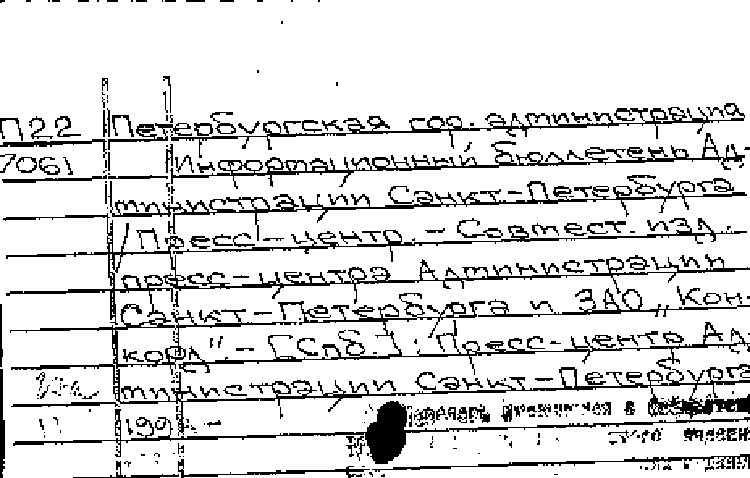 П22 Петербургская гор. администрация
7061 Информационный бюллетень Ад-
министрации Санкт-Петербурга
Пресс-центр. - Совмест. изд.
пресс-центра Администрации
Санкт-Петербурга и ЗАО „Кон-
корд". - [Спб.]: Пресс-центр Ад-
министрации Санкт-Петербурга
199 -